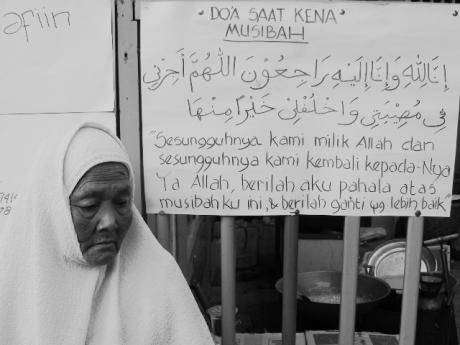 afiin
"DO'A SAAT KENA"
MUSIBAH
إِنَّا لِلّٰهِ وَإِنَّا إِلَيْهِ رَاجِعُوْنَ اللّٰهُمَّ أْجُرْنِي
فِيْ مُصِيْبَتِيْ وَاخْلُفْلِيْ خَيْرًا مِنْهَا
"Sesungguhnya kami milik Allah dan
sesungguhnya kami kembali kepada-Nya
Ya Allah, berilah aku pahala atas
musibah ku ini, & berilah ganti yg lebih baik